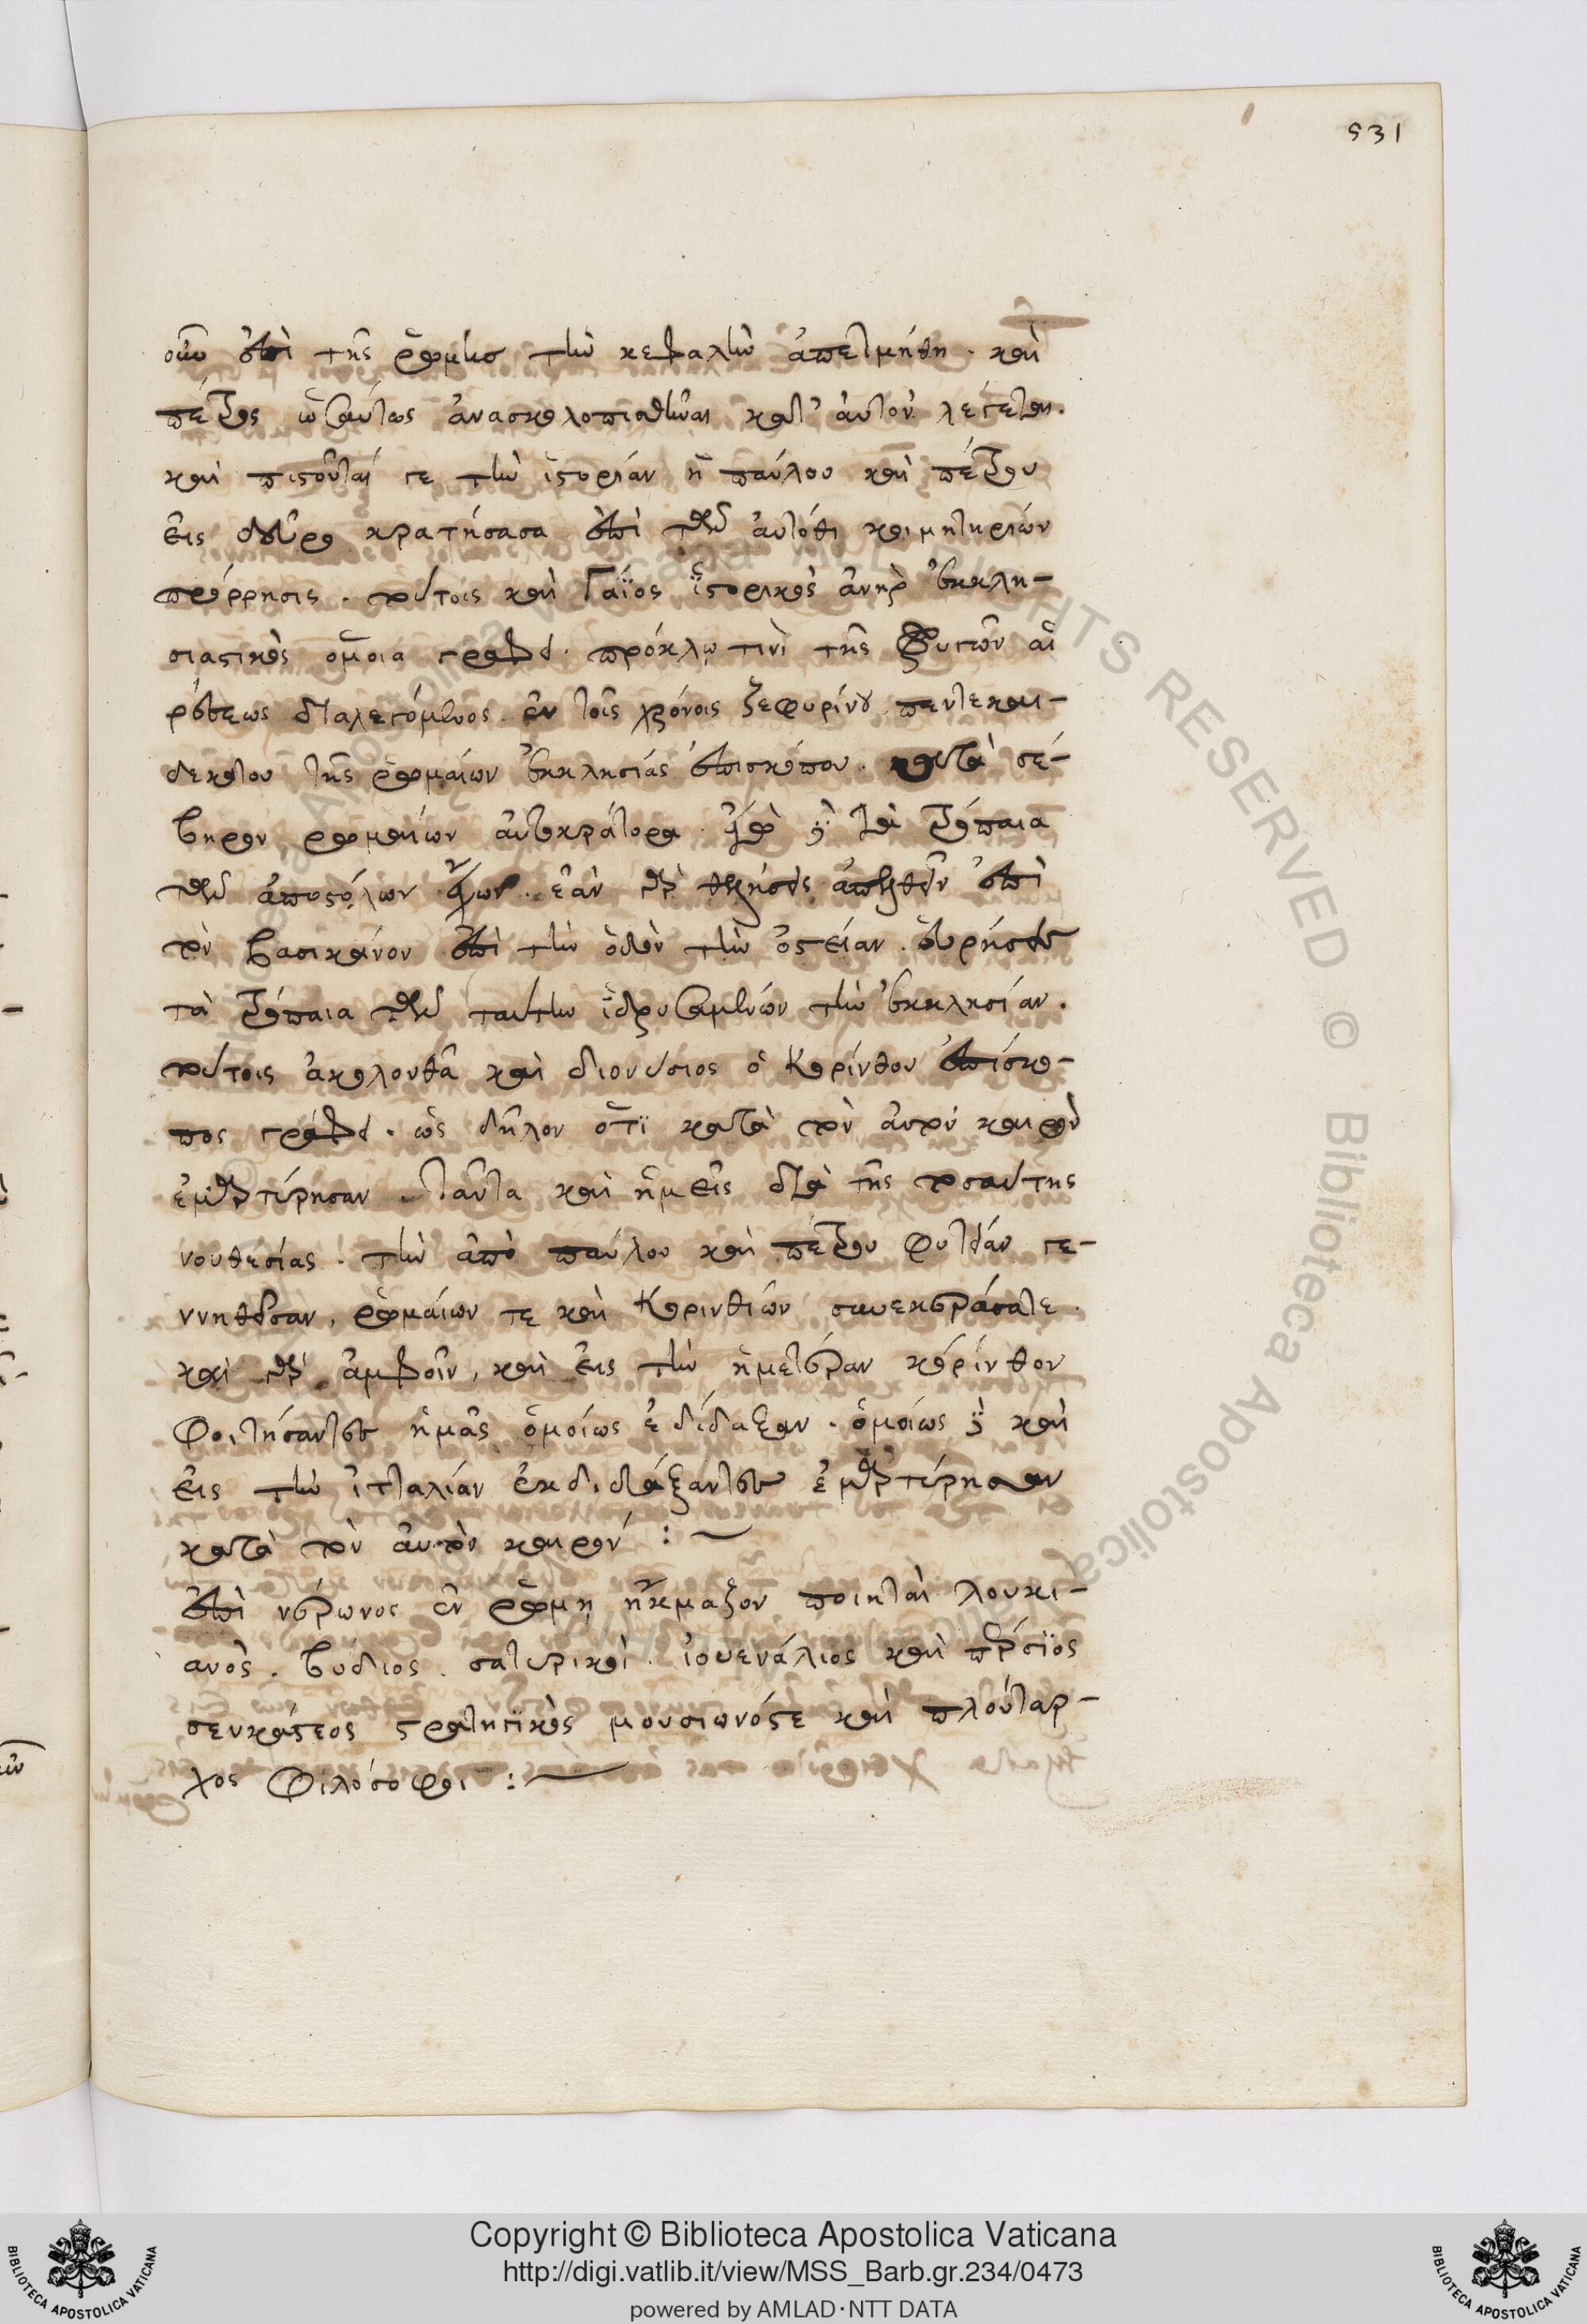 531
οὖν ἐπὶ τῆς ῥώμης τὴν κεφαλὴν ἀπετμήθη. καὶ
πέτρος ὡσαύτως ἀνασκολοπισθῆναι κατ' αὐτὸν λέγεται.
καὶ πιστοῦταί γε τὴν ἱστορίαν ἡ παύλου καὶ πέτρου
εἰς δεῦρο κρατήσασα ἐπὶ τῶν αὐτόθι κοιμητηρίων
πρόρρησις. τούτοις καὶ Γάϊος ἱστορικὸς ἀνὴρ ἐκκλη-
σιαστικὸς ὅμοια γράφει. πρόκλῳ τινὶ τῆς φρυγῶν αἱ
ρέσεως διαλεγόμενος. ἐν τοῖς χρόνοις ζεφυρίνου πεντεκαι-
δεκάτου τῆς ῥωμαίων ἐκκλησίας ἐπισκόπου. κατὰ σέ-
βηρον ρωμαίων αὐτοκράτορα. ἐγὼ δὲ τὰ τρόπαια
τῶν ἀποστόλων ἔχων. ἐὰν γὰρ θελήσεις ἀπελθεῖν ἐπὶ
τὸν βασικάνον ἐπὶ τὴν ὁδὸν τὴν ὀστείαν. εὑρήσεις
τὰ τρόπαια τῶν ταύτην ἱδρυσαμένων τὴν ἐκκλησίαν.
τούτοις ἀκολουθᾶ καὶ διονύσιος ὁ Κορίνθου ἐπίσκο-
πος γράφει. ὡς δῆλον ὅτι κατὰ τὸν αὐτὸν καιρὸν
ἐμαρτύρησαν. ταῦτα καὶ ἡμεῖς διὰ τῆς τοσαύτης
νουθεσίας. τὴν ἀπὸ παύλου καὶ πέτρου φυτείαν γε-
ννηθεῖσαν, ῥωμαίων τε καὶ Κορινθίων συνεκεράσατε.
καὶ γὰρ ἀμφοῖν, καὶ εἰς τὴν ἡμετέραν κόρινθον
φοιτήσαντες ἡμᾶς ὁμοίως ἐδίδαξαν. ὁμοίως δὲ καὶ
εἰς τὴν ἰταλίαν ἐκδιδάξαντες ἐμαρτύρησαν
κατὰ τὸν αὐτὸν καιρόν :~
ἐπὶ νέρωνος ἐν ῥώμῃ ἤκμαζον ποιηταὶ λουκι-
ανὸς. βύδιος. σατυρικοὶ. ἰουενάλιος καὶ πέρσϊος
σευκάτεος στρατηγικὸς μουσιωνόστε καὶ πλούταρ-
χος φιλόσοφοι :~
Copyright © Biblioteca Apostolica Vaticana
http://digi.vatlib.it/view/MSS_Barb.gr.234/0473
powered by AMLAD·NTT DATA